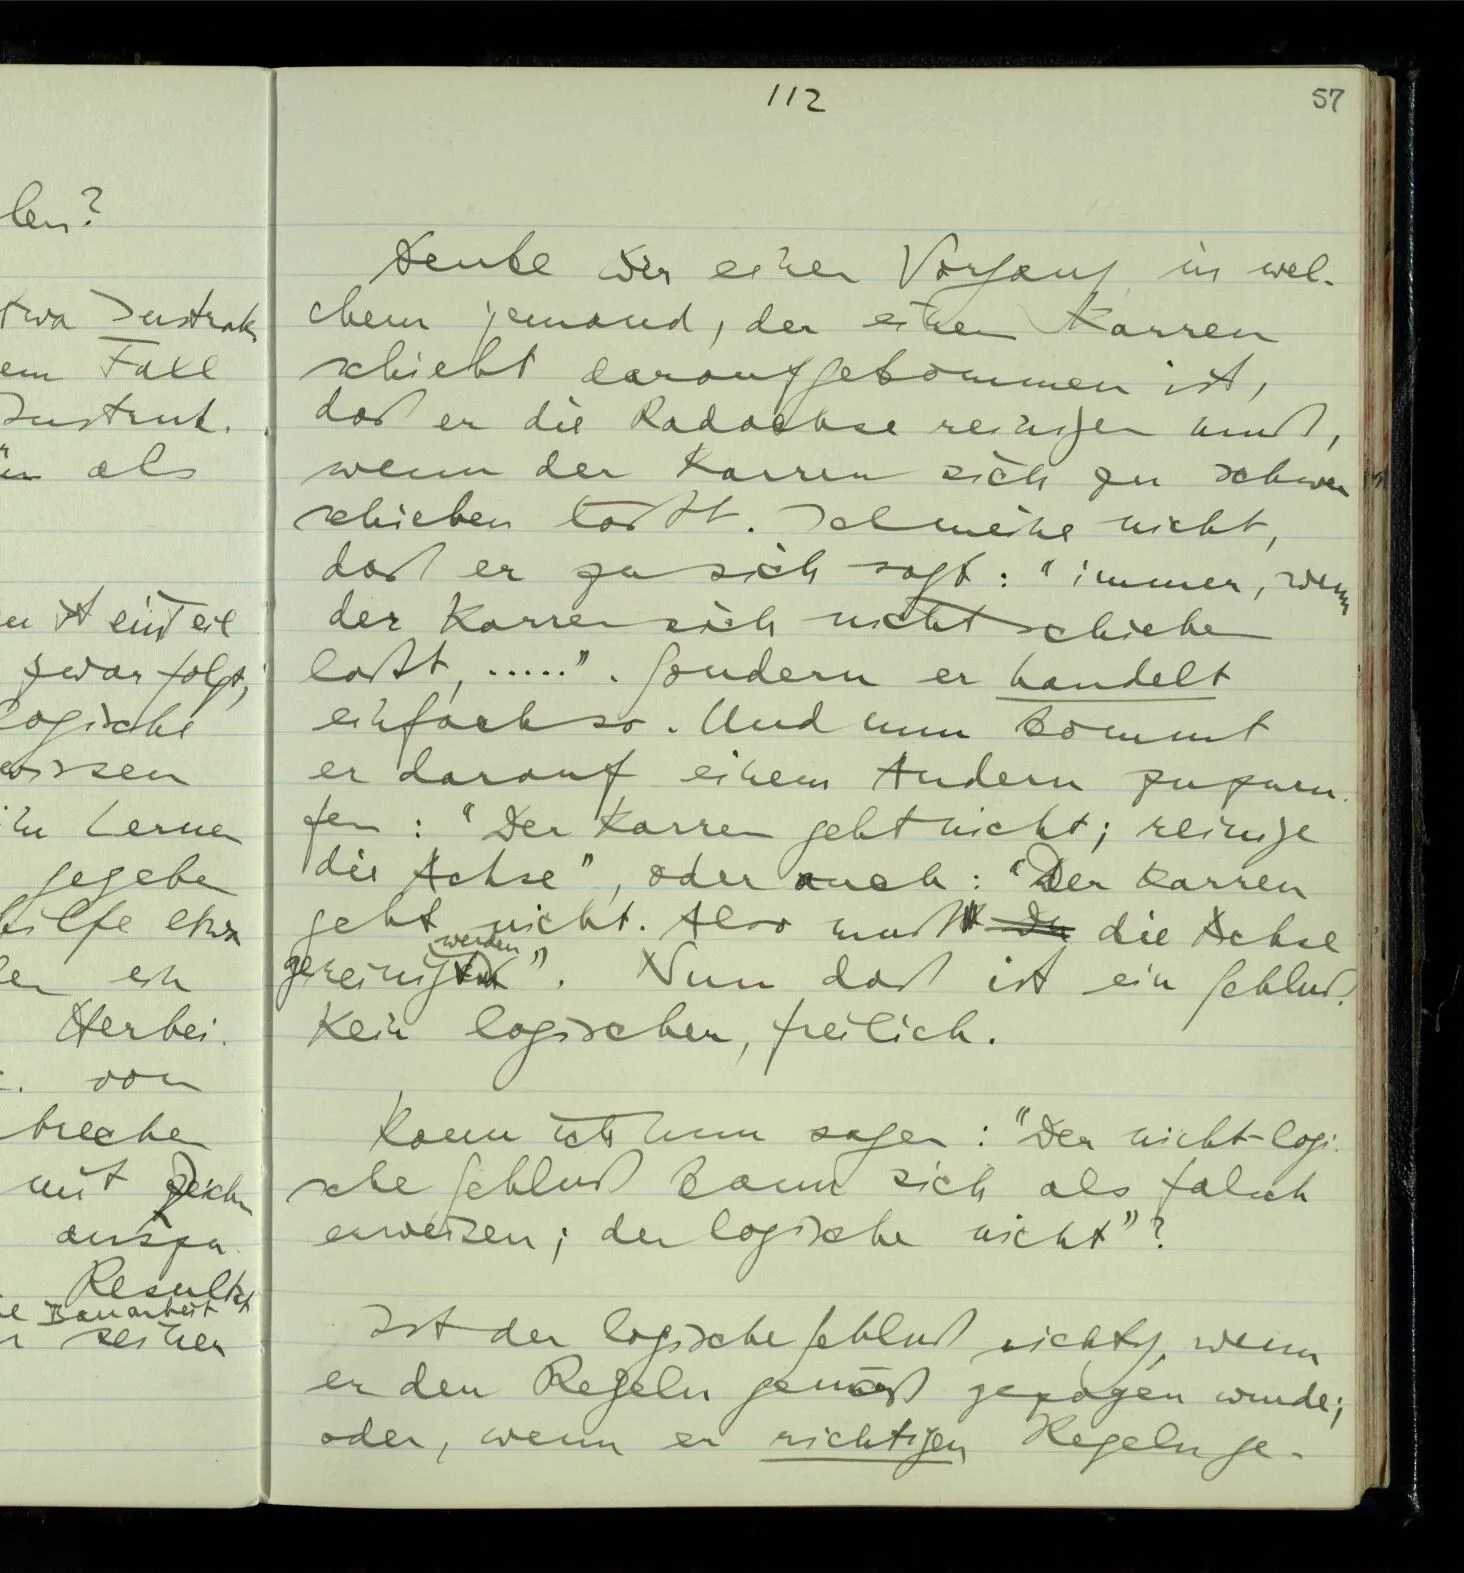 112
57
len?
twa Instruk
em Fall
Instruk.
als
zwar folgt,
logische
wissen
Lernen
gegeben
hilfe etwa
ein
Herbei-
von
brechen
mit Zeichn
Resultat
Bauarbeit
seiner
Denke Dir einen Vorgang in wel-
chem jemand, der einen Karren
schiebt daraufgekommen ist,
daß er die Radachse reinigen muß,
wenn der Karren sich zu schwer
schieben läßt. Ich meine nicht,
daß er zu sich sagt: "immer, wenn
der Karren sich nicht schieben
läßt, ....." . Sondern er handelt
einfach so. Und nun kommt
er darauf einem Andern zuzuru-
fen: "Der Karren geht nicht; reinige
die Achse", oder auch: "Der Karren
geht nicht. Also muß die Achse
werden
gereinigt ". Nun das ist ein Schluß.
Kein logischer, freilich.
Kann ich nun sagen: "Der nicht-logi-
sche Schluß kann sich als falsch
erweisen; der logische nicht"?
Ist der logische Schluß richtig, wenn
er den Regeln gemäß gezogen wurde;
oder, wenn er richtigen Regeln ge-